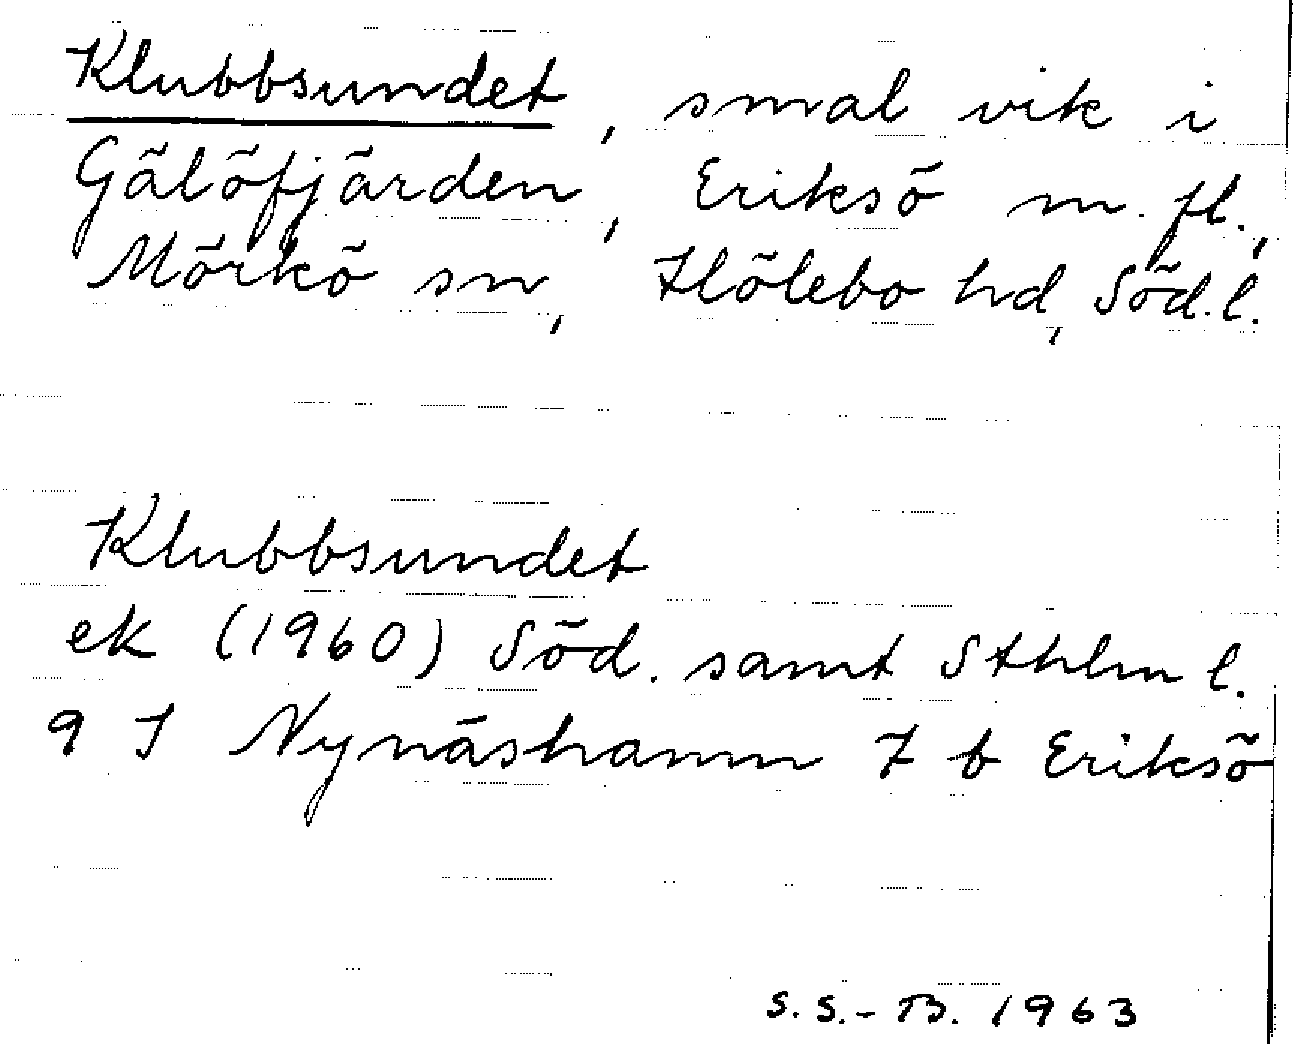 Klubbsundet, smal vik i
Gälöfjärden, Eriksö m. fl.,
Mörkö sn, Hölebo hd, Söd. l.
Klubbsundet
ek (1960) Söd. samt Sthlm l.
9 I Nynäshamn 7 b Eriksö
S. S.-B. 1963